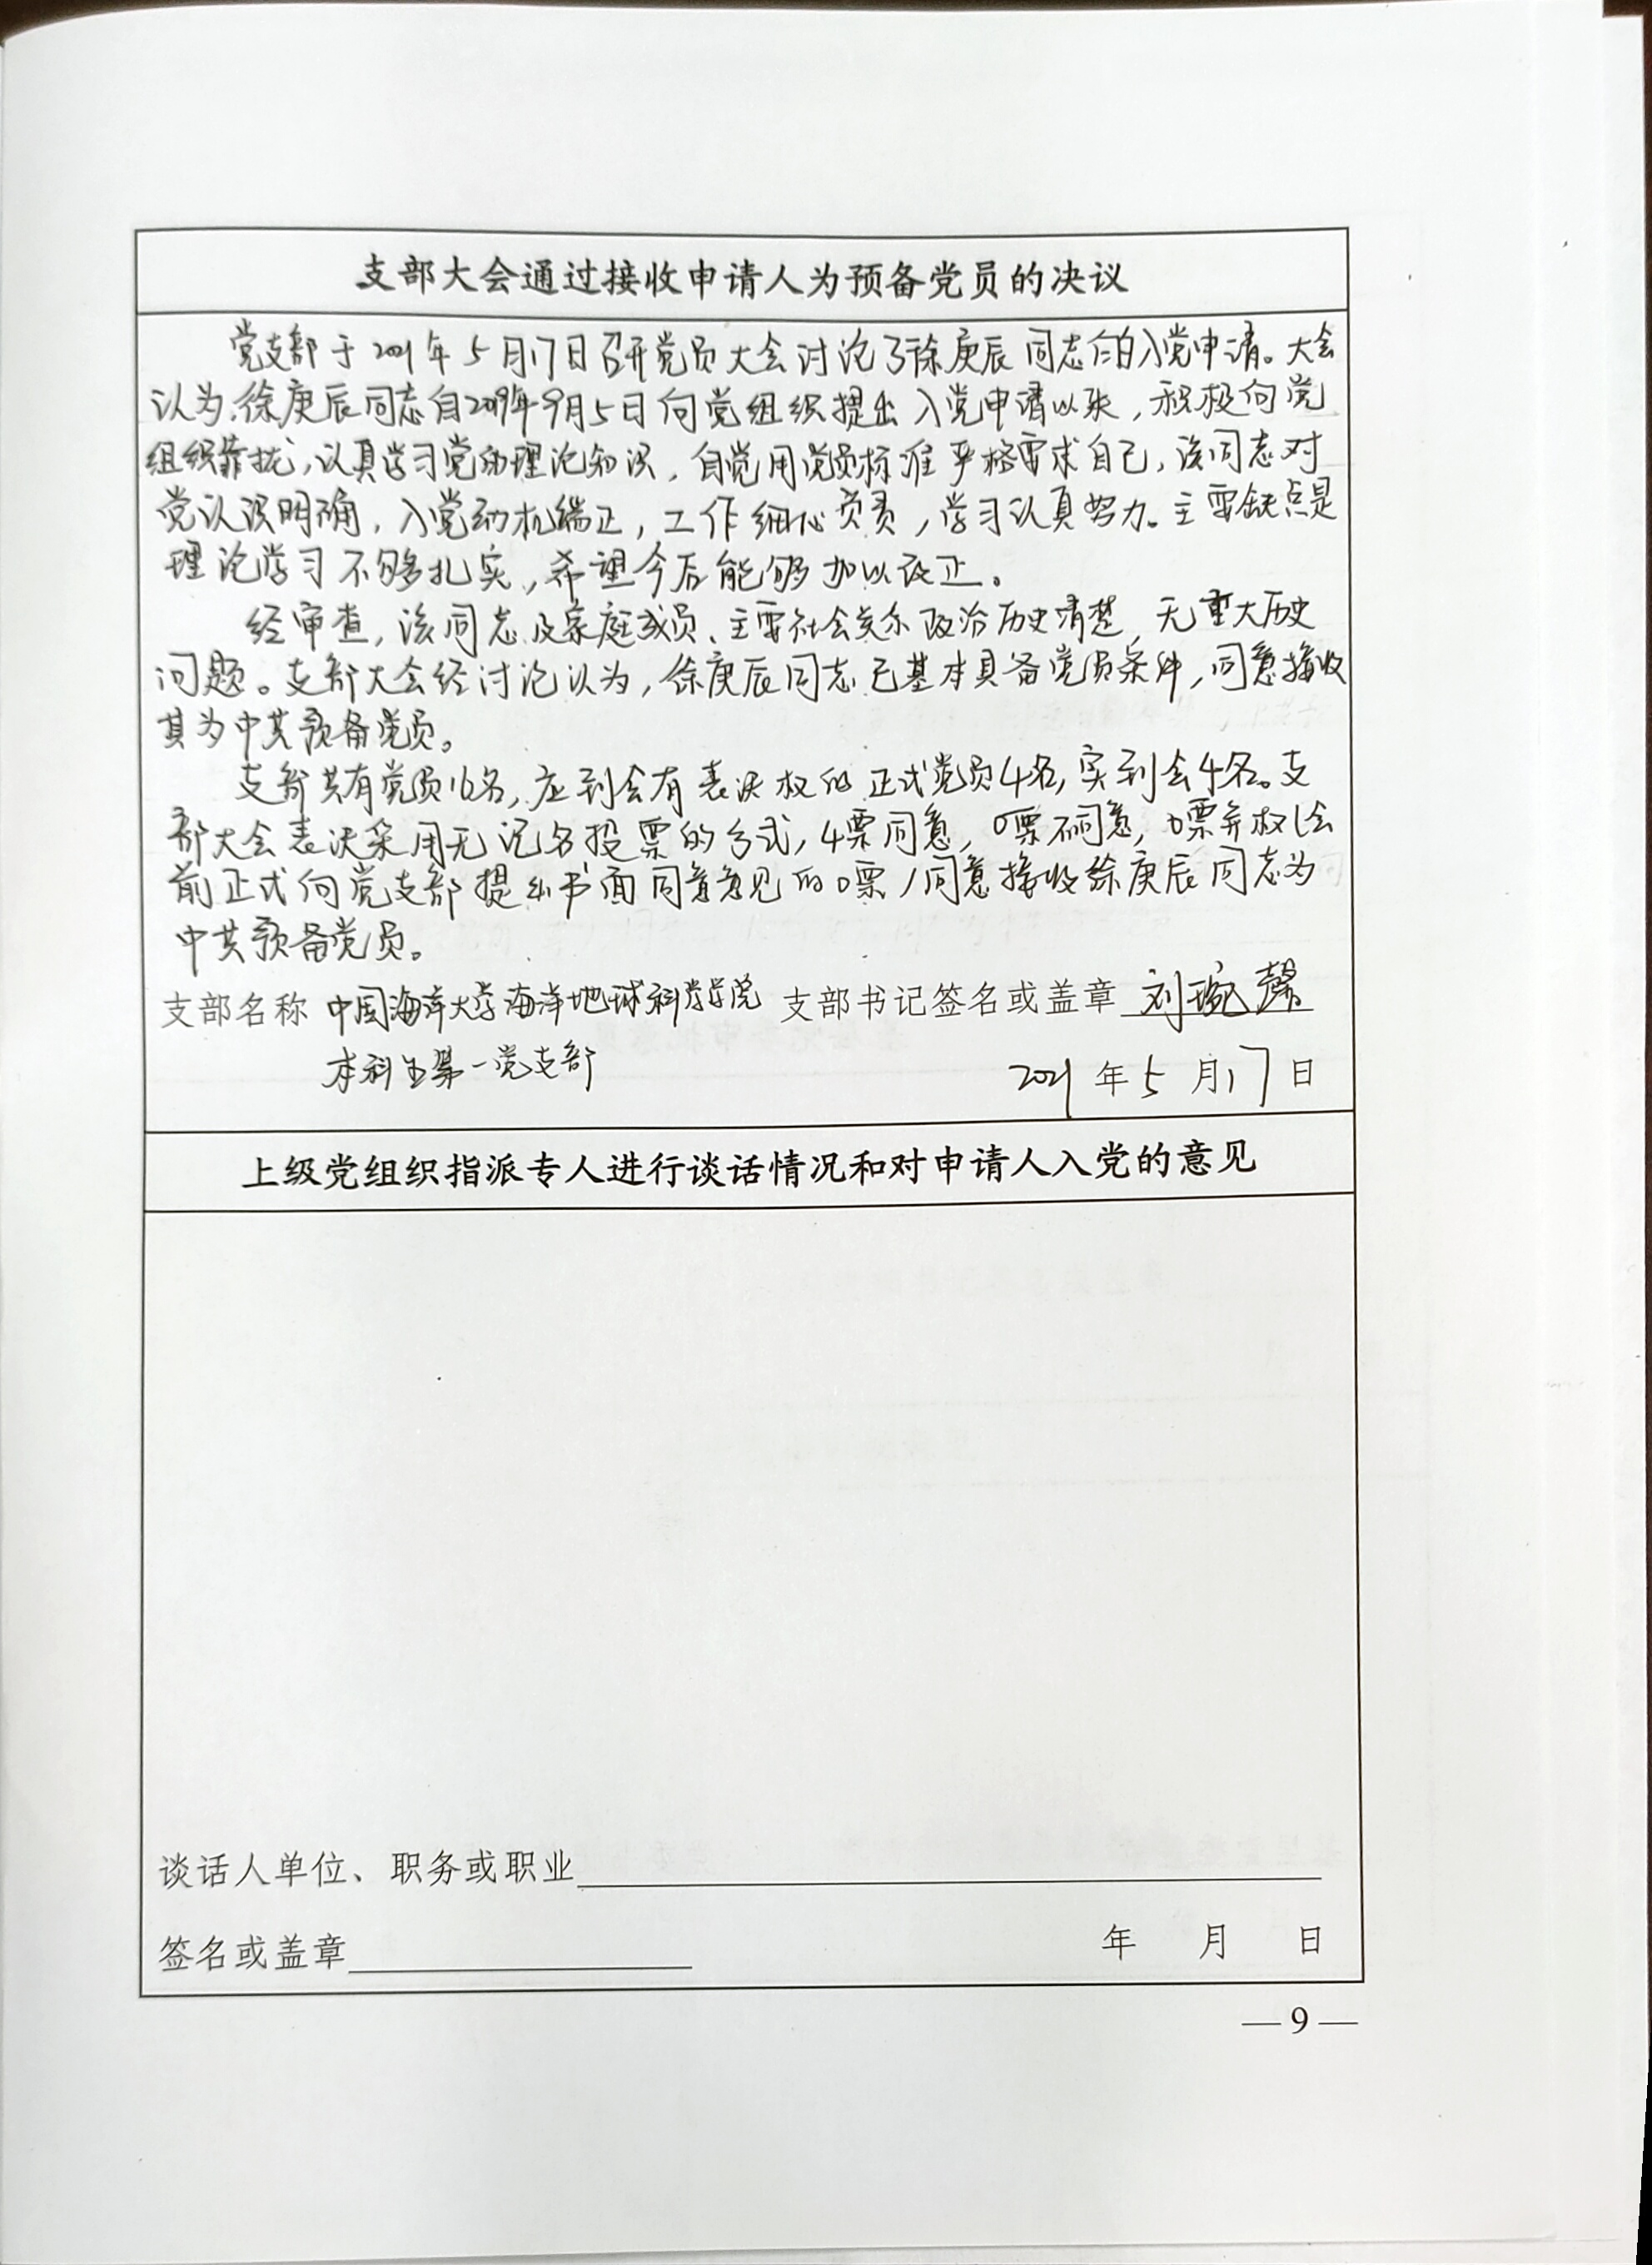 支部大会通过接收申请人为预备党员的决议
党支部于2021年5月17日召开党员大会讨论了徐庚辰同志的入党申请。大会
认为,徐庚辰同志自2019年9月5日向党组织提出入党申请以来,积极向党
组织靠拢,认真学习党的理论知识,自觉用党员标准严格要求自己,该同志对
党认识明确,入党动机端正,工作细心负责,学习认真努力。主要缺点是
理论学习不够扎实,希望今后能够加以改正。
经审查,该同志及家庭成员、主要社会关系政治历史清楚,无重大历史
问题。支部大会经讨论认为,徐庚辰同志已基本具备党员条件,同意接收
其为中共预备党员。
支部共有党员16名,应到会有表决权的正式党员4名,实到会4名。支
部大会表决采用无记名投票的方式,4票同意,0票不同意,0票弃权(会
前正式向党支部提出书面同意意见的0票)同意接收徐庚辰同志为
中共预备党员。
支部名称 中国海洋大学海洋地球科学学院 支部书记签名或盖章 刘琬馨
本科生第一党支部 2021年5月17日
上级党组织指派专人进行谈话情况和对申请人入党的意见
谈话人单位、职务或职业
签名或盖章 年 月 日
—9—